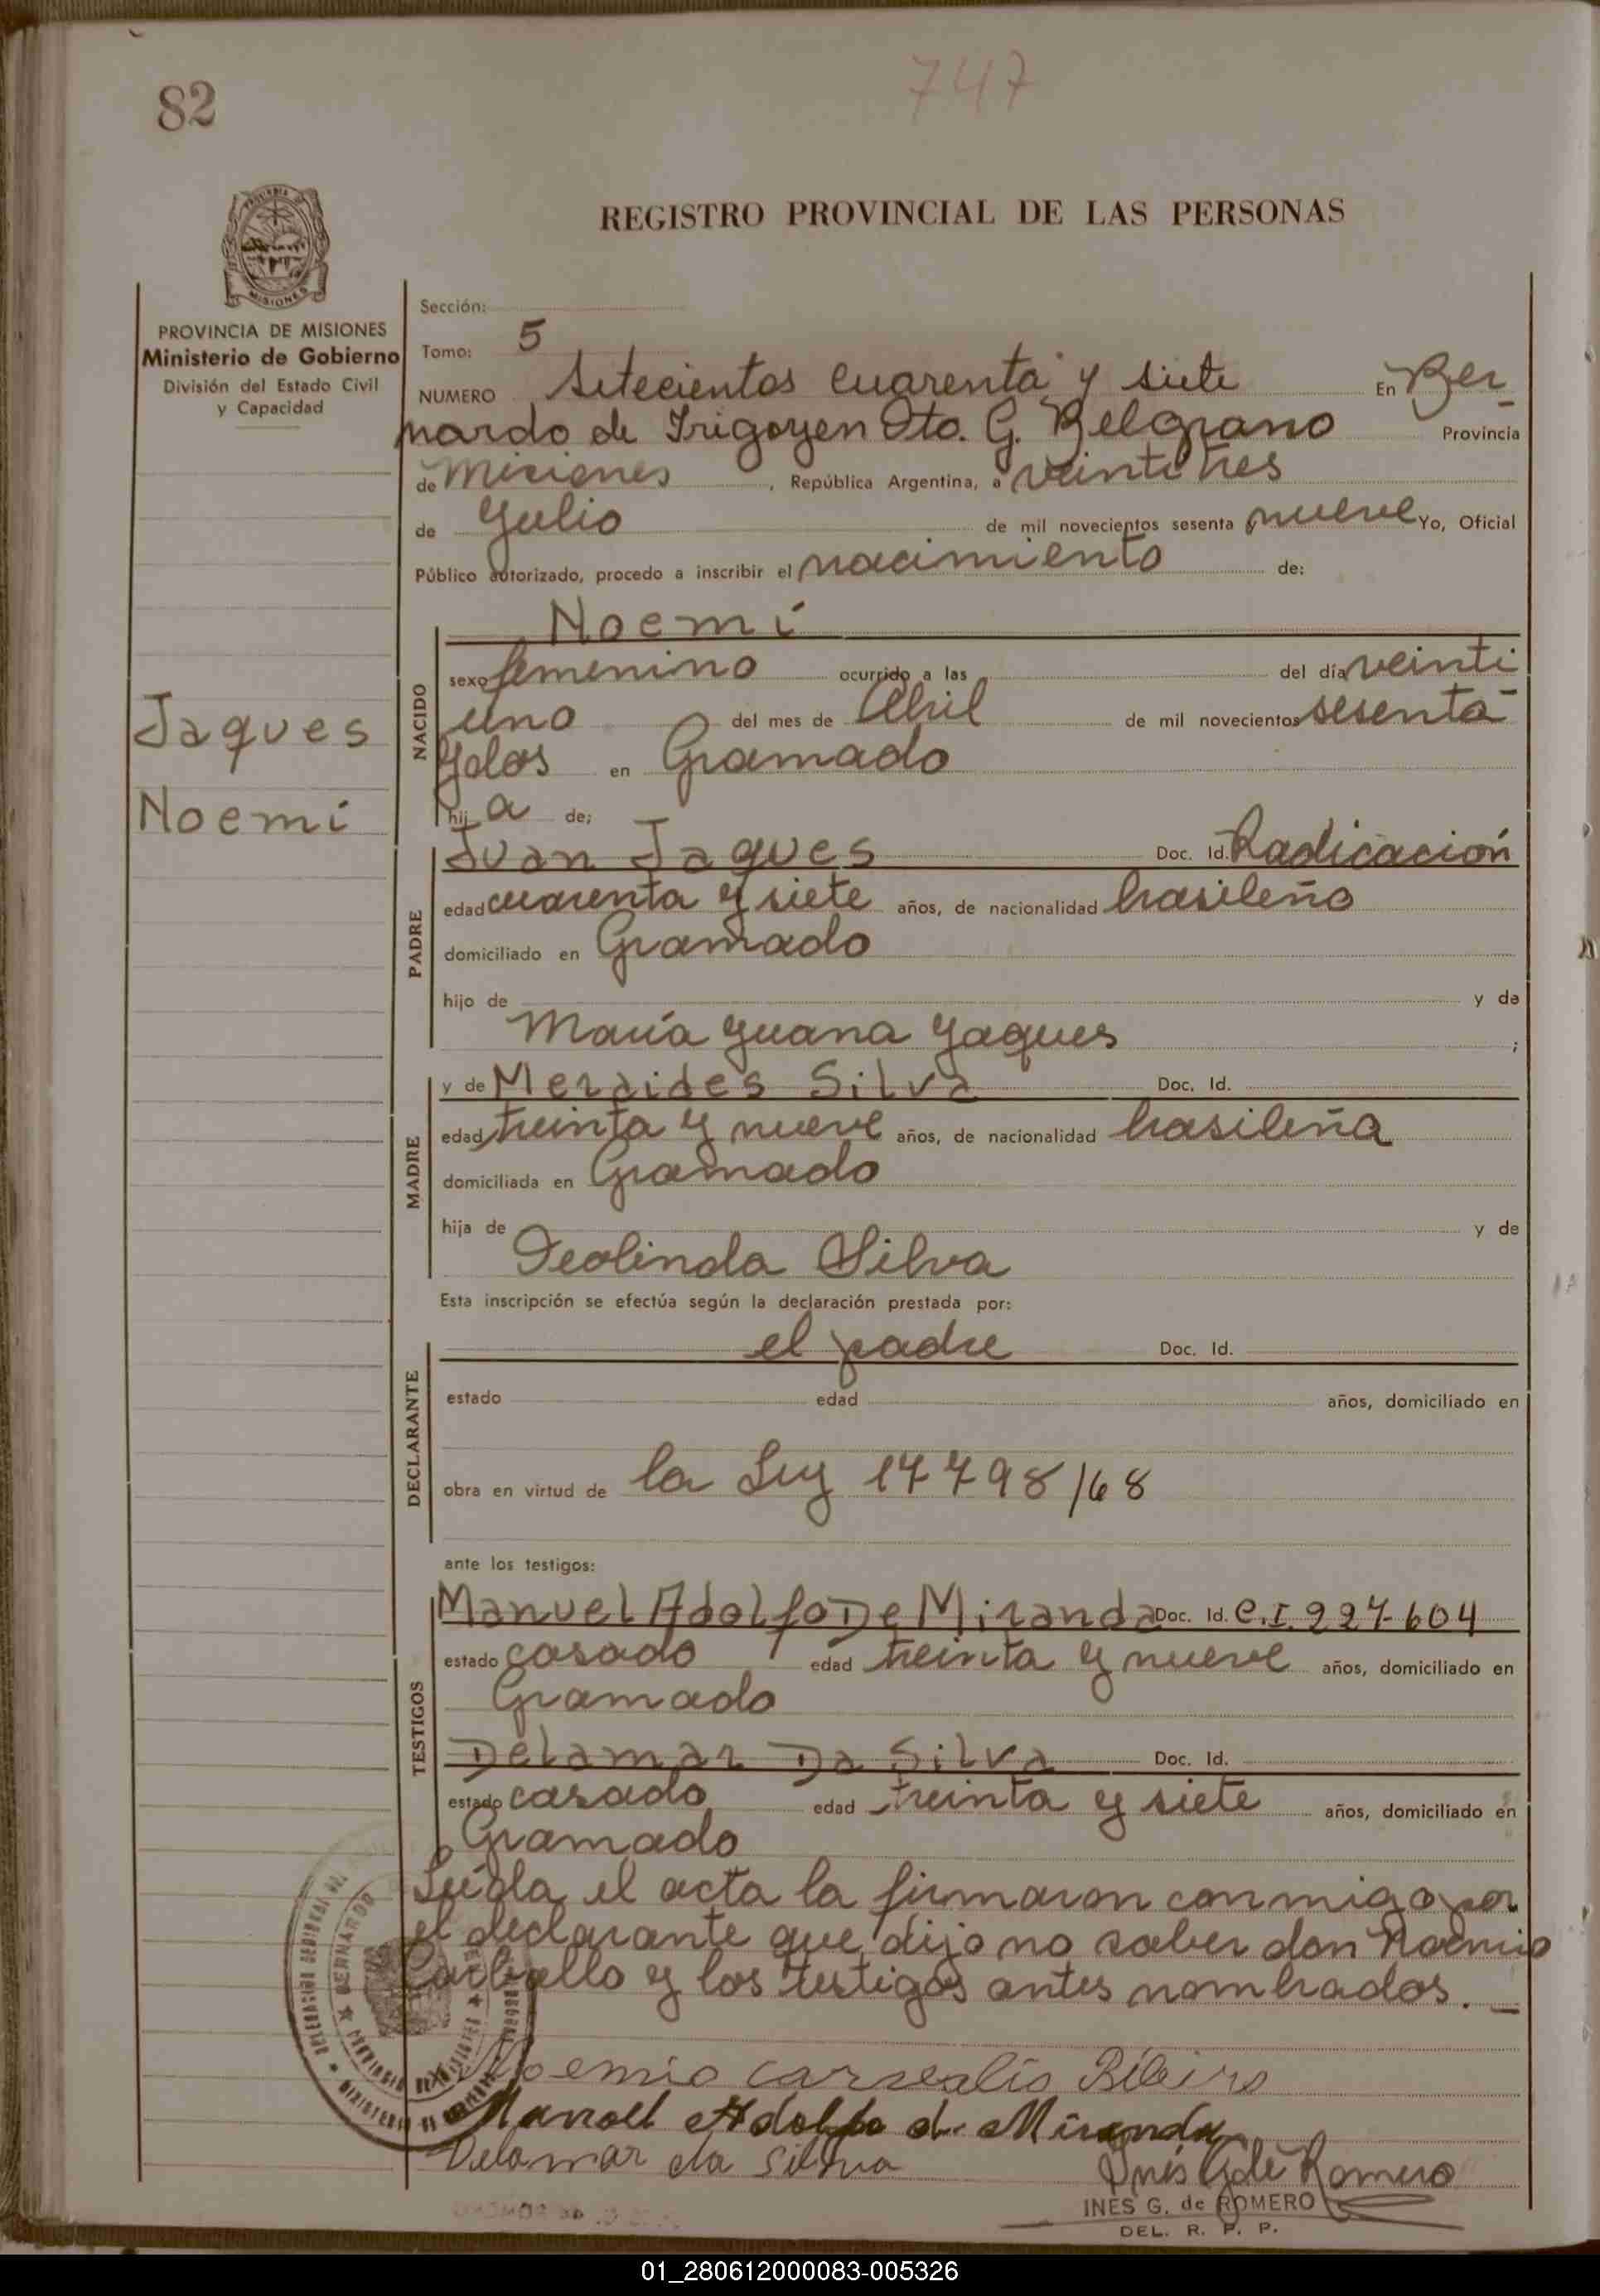 747
82
REGISTRO PROVINCIAL DE LAS PERSONAS
MISIONES
PROVINCIA DE MISIONES
Ministerio de Gobierno
División del Estado Civil
y Capacidad
Jaques
Noemi
Sección:
Tomo: 5
NUMERO Setecientos cuarenta y siete En Ber
nardo de Irigoyen Dto. G. Belgrano Provincia
de Misiones, República Argentina, a veintitres
de Julio de mil novecientos sesenta y nueve Yo, Oficial
Público autorizado, procedo a inscribir el nacimiento de:
NACIDO
Noemí
sexo femenino ocurrido a las del día veinti
uno del mes de Abril de mil novecientos sesenta
y dos en Gramado
hij a de;
PADRE
Juan Jaques Doc. Id. Radicación
edad cuarenta y siete años, de nacionalidad brasileño
domiciliado en Gramado
hijo de y de
María Juana Jaques ;
MADRE
y de Meraides Silva Doc. Id.
edad treinta y nueve años, de nacionalidad brasileña
domiciliada en Gramado
hija de y de
Deolinda Silva
Esta inscripción se efectúa según la declaración prestada por:
DECLARANTE
el padre Doc. Id.
estado edad años, domiciliado en
obra en virtud de la Ley 17798/68
ante los testigos:
TESTIGOS
Manuel Adolfo De Miranda Doc. Id. C.I. 227-604
estado casado edad treinta y nueve años, domiciliado en
Gramado
Delamar Da Silva Doc. Id.
estado casado edad treinta y siete años, domiciliado en
Gramado
Leída el acta la firmaron conmigo por
el declarante que dijo no saber don Noemio
Carballo y los testigos antes nombrados. —
Noemio carvalio Ribeiro
Manoel Adolfo de Miranda
Delamar da Silva
Inés G de Romero
INES G. de ROMERO
DEL. R. P. P.
01_280612000083-005326